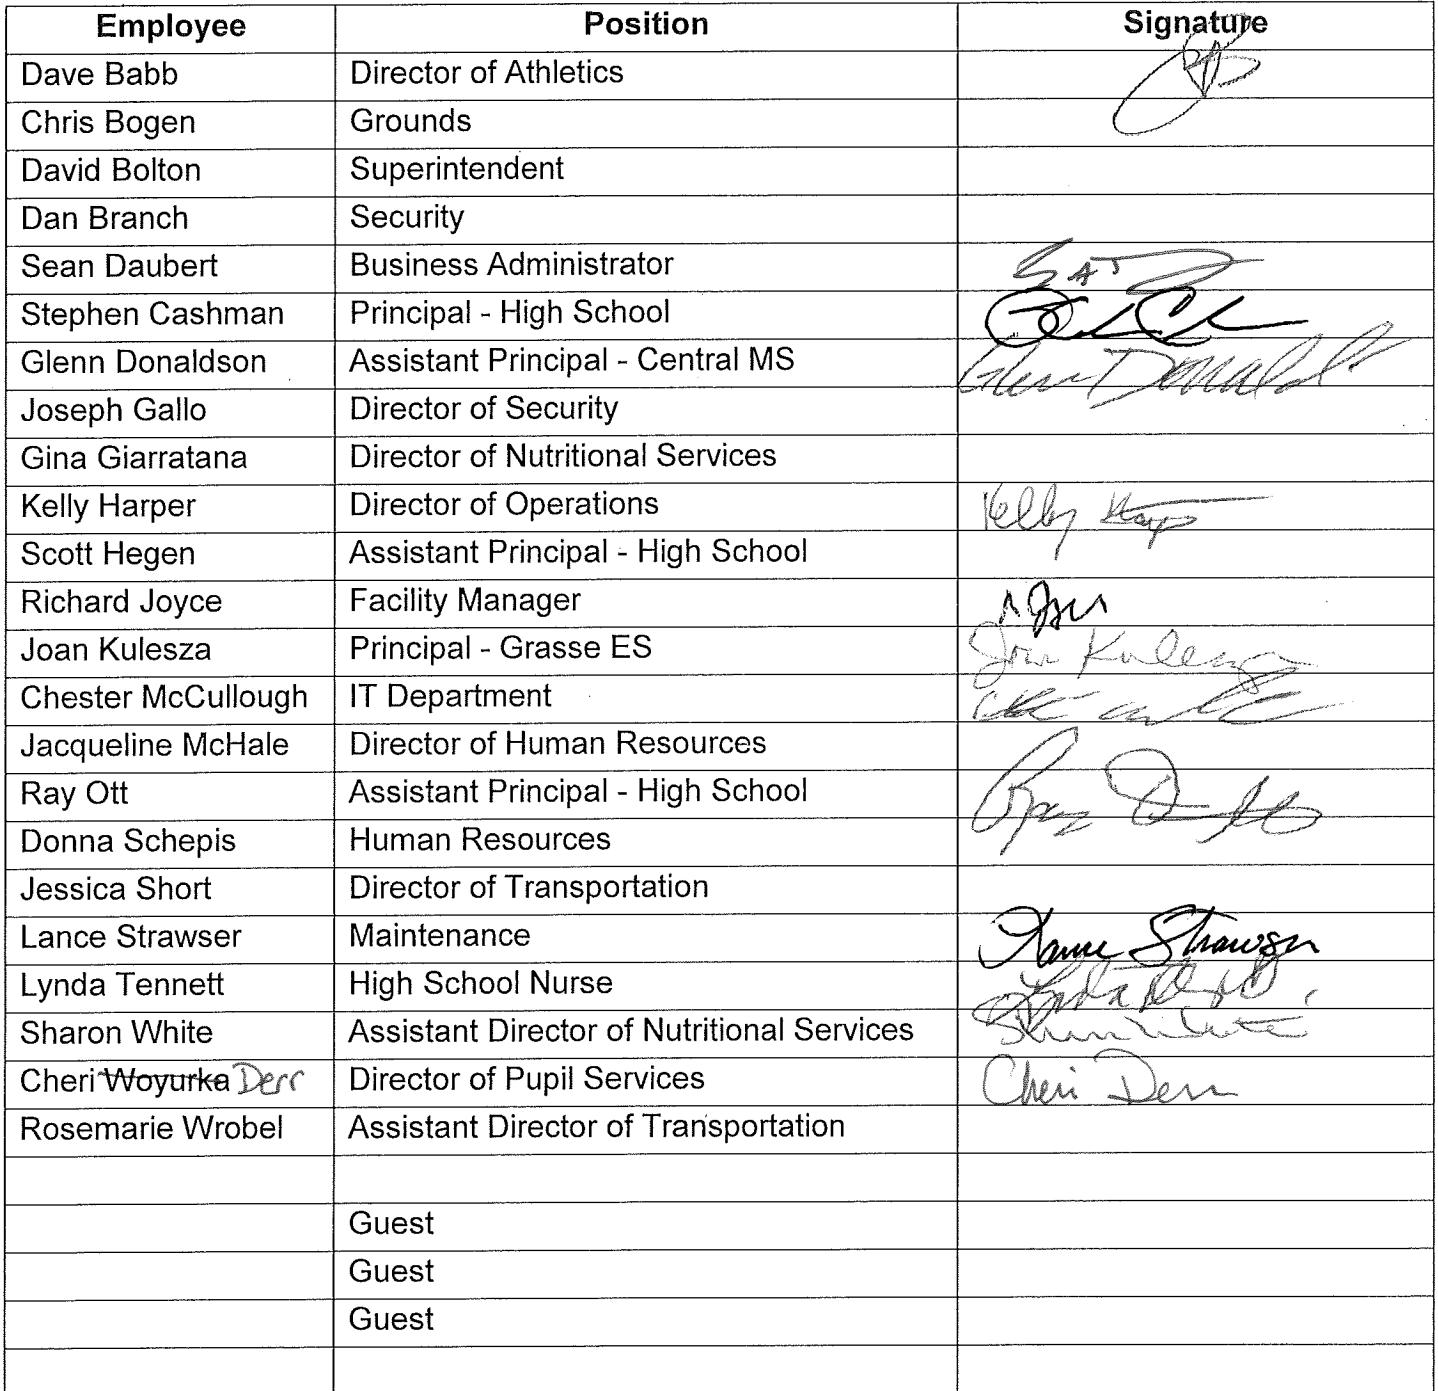 Employee Position Signature
Dave Babb Director of Athletics
Chris Bogen Grounds
David Bolton Superintendent
Dan Branch Security
Sean Daubert Business Administrator
Stephen Cashman Principal - High School
Glenn Donaldson Assistant Principal - Central MS Glenn Donaldson
Joseph Gallo Director of Security
Gina Giarratana Director of Nutritional Services
Kelly Harper Director of Operations Kelly Harper
Scott Hegen Assistant Principal - High School
Richard Joyce Facility Manager
Joan Kulesza Principal - Grasse ES Joan Kulesza
Chester McCullough IT Department
Jacqueline McHale Director of Human Resources
Ray Ott Assistant Principal - High School Ray Ott
Donna Schepis Human Resources
Jessica Short Director of Transportation
Lance Strawser Maintenance Lance Strawser
Lynda Tennett High School Nurse Lynda
Sharon White Assistant Director of Nutritional Services Sharon White
Cheri Woyurka Derr Director of Pupil Services Cheri Derr
Rosemarie Wrobel Assistant Director of Transportation
Guest
Guest
Guest